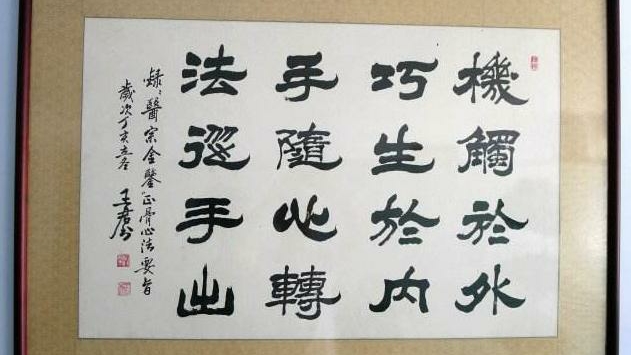 機觸於外
巧生於內
手隨心轉
法從手出
錄《醫宗金鑒》正骨心法要旨
歲次丁亥立冬